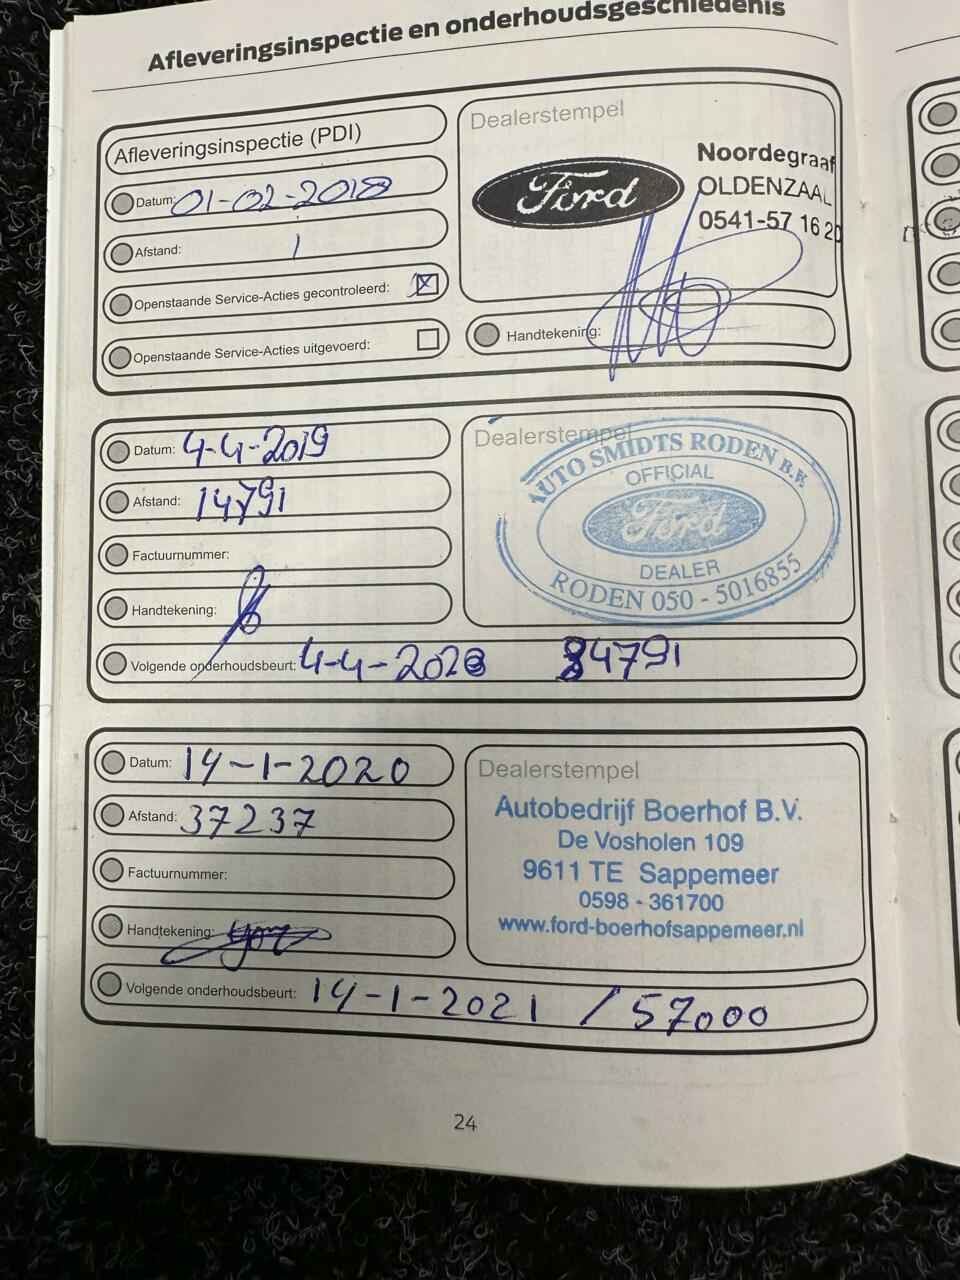 Afleveringsinspectie en onderhoudsgeschiedenis
Afleveringsinspectie (PDI)
Datum: 01-02-2018
Afstand: 1
Openstaande Service-Acties gecontroleerd: X
Openstaande Service-Acties uitgevoerd:
Dealerstempel
Ford
Noordegraaf
OLDENZAAL
0541-57 16 20
Handtekening:
Datum: 4-4-2019
Afstand: 14791
Factuurnummer:
Handtekening:
Dealerstempel
AUTO SMIDTS RODEN B.V.
OFFICIAL
Ford
DEALER
RODEN 050 - 5016855
Volgende onderhoudsbeurt: 4-4-2020 34791
Datum: 14-1-2020
Afstand: 37237
Factuurnummer:
Handtekening:
Dealerstempel
Autobedrijf Boerhof B.V.
De Vosholen 109
9611 TE Sappemeer
0598 - 361700
www.ford-boerhofsappemeer.nl
Volgende onderhoudsbeurt: 14-1-2021 / 57000
24